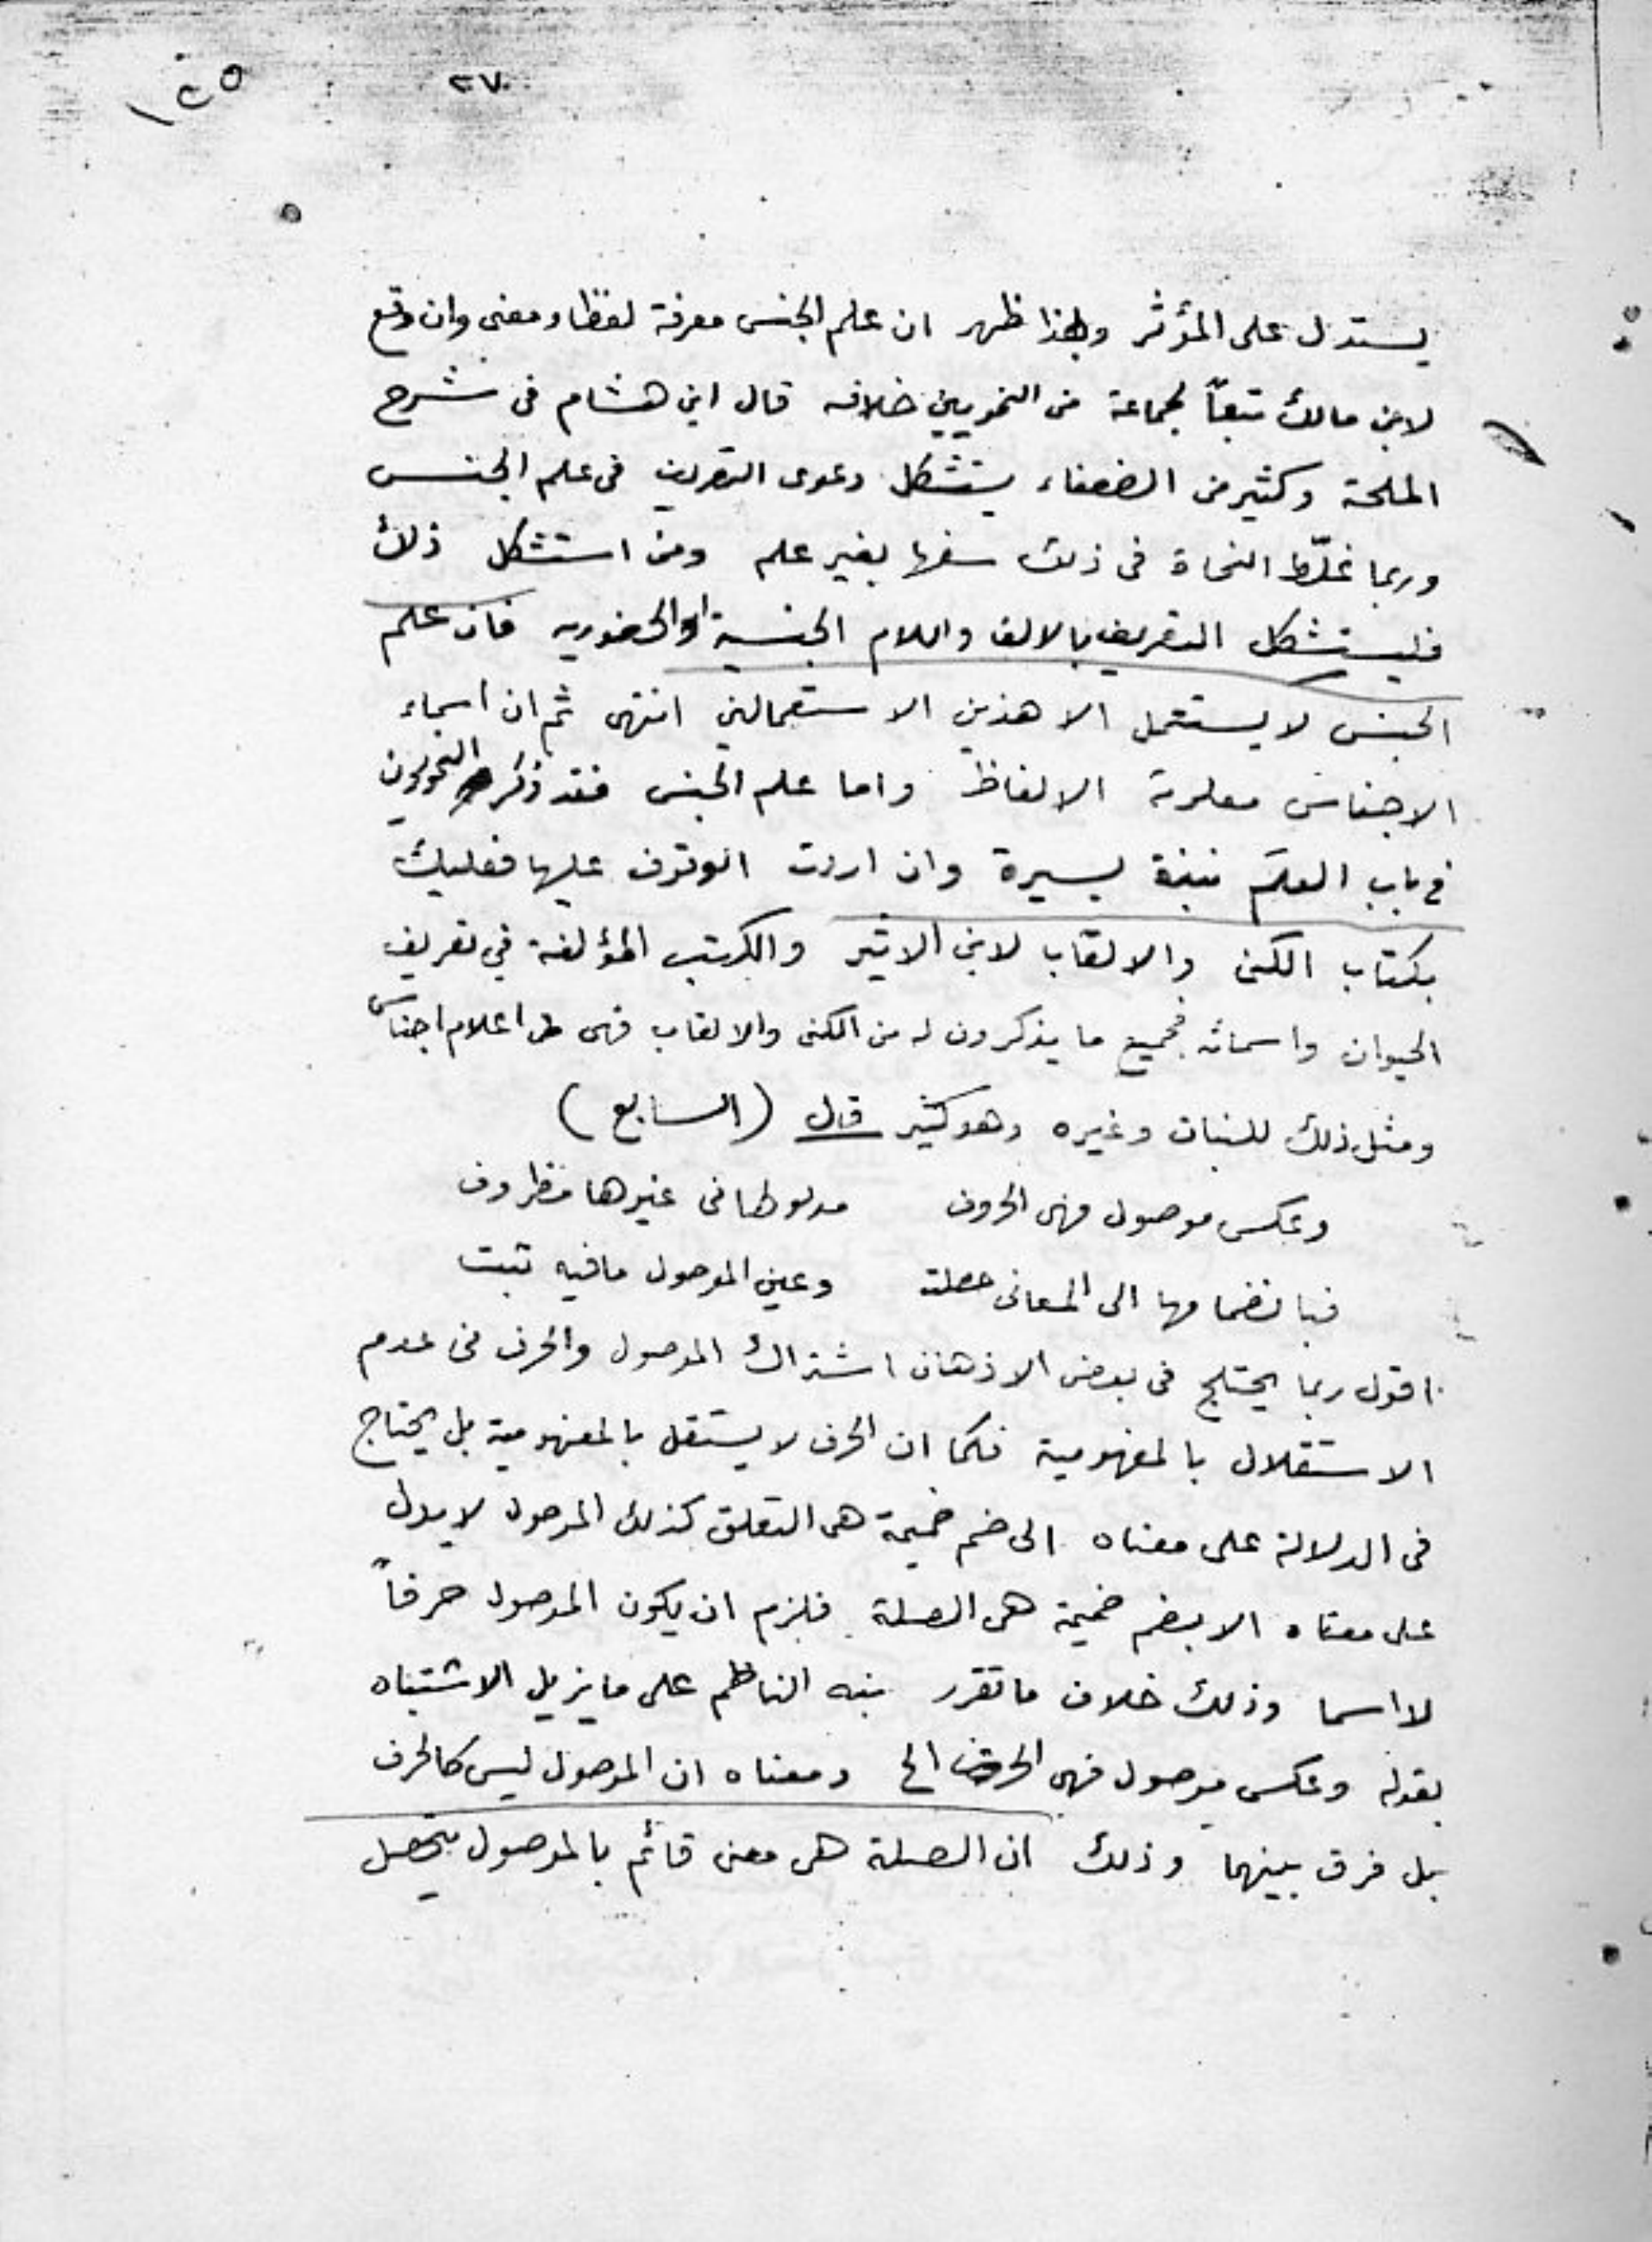 ١٢٥ ٢٧
يستدل على المؤثر وبهذا ظهر ان علم الجنس معرفة لفظا ومعنى وان وقع
لابن مالك تبعًا لجماعة من النحويين خلافه قال ابن هشام فى شرح
الملحة وكثير من الضعفاء يستشكل دعوى التعريف فى علم الجنس
وربما غلّط النحاة فى ذلك سفها بغير علم ومن استشكل ذلك
فليستشكل التعريف بالالف واللام الجنسية او الحضوريه فان علم
الجنس لا يستعمل الا هذين الاستعمالين انتهى ثم ان اسماء
الاجناس معلومة الالفاظ واما علم الجنس فقد ذكر النحويون
فى باب العلَم نبذة يسيرة وان اردت الوقوف عليها فعليك
بكتاب الكنى والالقاب لابن الاثير والكتب المؤلفة في تعريف
الحيوان واسمائه فجميع ما يذكرون له من الكنى والالقاب فهى اعلام اجناس
ومثل ذلك للنبات وغيره وهو كثير قال (السابع)
وعكس موصول فهى الحروف مدلولها فى غيرها مظروف
فبانضمامها الى المعانى حصلت وعين الموصول مافيه ثبت
اقول ربما يختلج فى بعض الاذهان اشتراك الموصول والحرف فى عدم
الاستقلال بالمفهومية فكما ان الحرف لا يستقل بالمفهومية بل يحتاج
فى الدلالة على معناه الى ضم ضميمة هى التعلق كذلك الموصول لايدل
على معناه الا بضم ضميمة هى الصلة فلزم ان يكون الموصول حرفاً
لا اسما وذلك خلاف ماتقرر نبه الناظم على مايزيل الاشتباه
بقوله وعكس موصول فهى الحروف الخ ومعناه ان الموصول ليس كالحرف
بل فرق بينهما وذلك ان الصلة هى معنى قائم بالموصول يتحصل